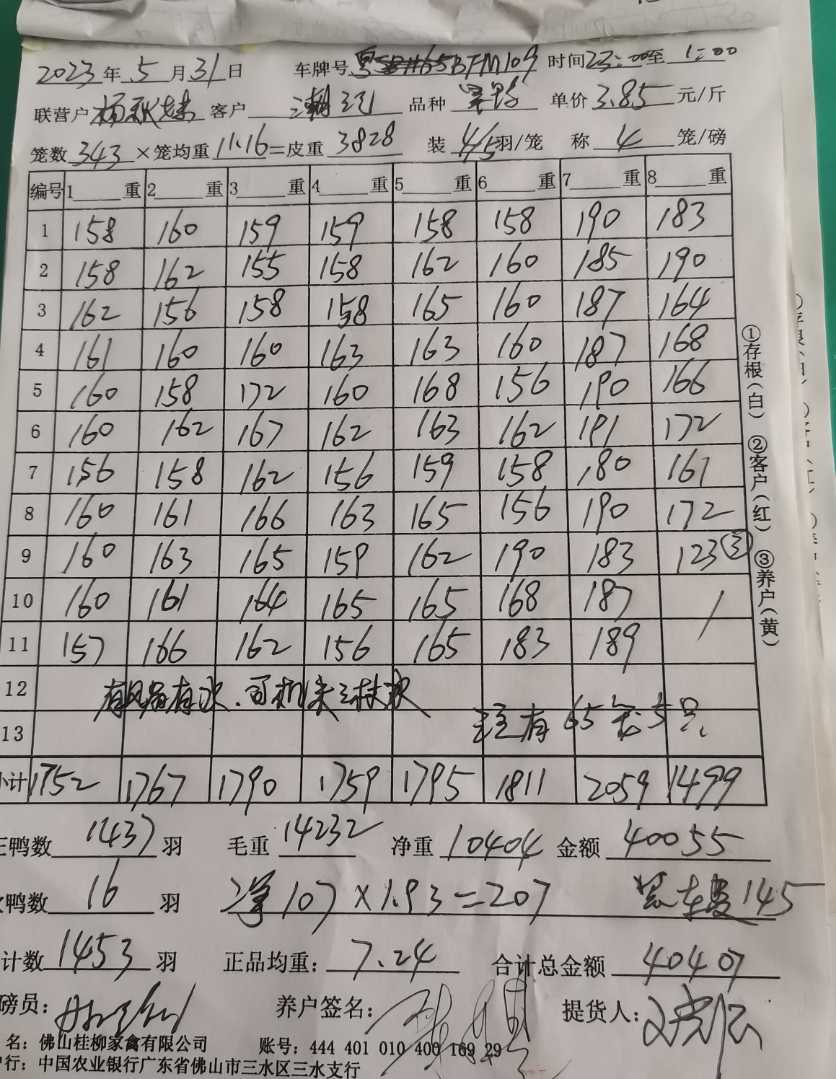 2023年5月31日 车牌号粤 BFM109 时间23:00至1:00
联营户杨秋 客户潮记 品种 单价3.85元/斤
笼数343×笼均重11.16=皮重3828 装4/5羽/笼 称4笼/磅
编号 1 重 2 重 3 重 4 重 5 重 6 重 7 重 8 重
1 158 160 159 159 158 158 190 183
2 158 162 155 158 162 160 185 190
3 162 156 158 158 165 160 187 164
4 161 160 160 163 163 160 187 168
5 160 158 172 160 168 156 190 166
6 160 162 167 162 163 162 191 172
7 156 158 162 156 159 158 180 161
8 160 161 166 163 165 156 190 172
9 160 163 165 159 162 190 183 123③
10 160 161 164 165 165 168 187 /
11 157 166 162 156 165 183 189
12
13 有65笼5只
小计 1752 1767 1790 1759 1795 1811 2059 1499
①存根(白) ②客户(红) ③养户(黄)
正鸭数1437羽 毛重14232 净重10404 金额40055
鸭数16羽 107×1.93=207 车费145
计数1453羽 正品均重:7.24 合计总金额40407
磅员: 养户签名: 提货人:
名:佛山桂柳家禽有限公司 账号:444 401 010 400 169 29
户行:中国农业银行广东省佛山市三水区三水支行